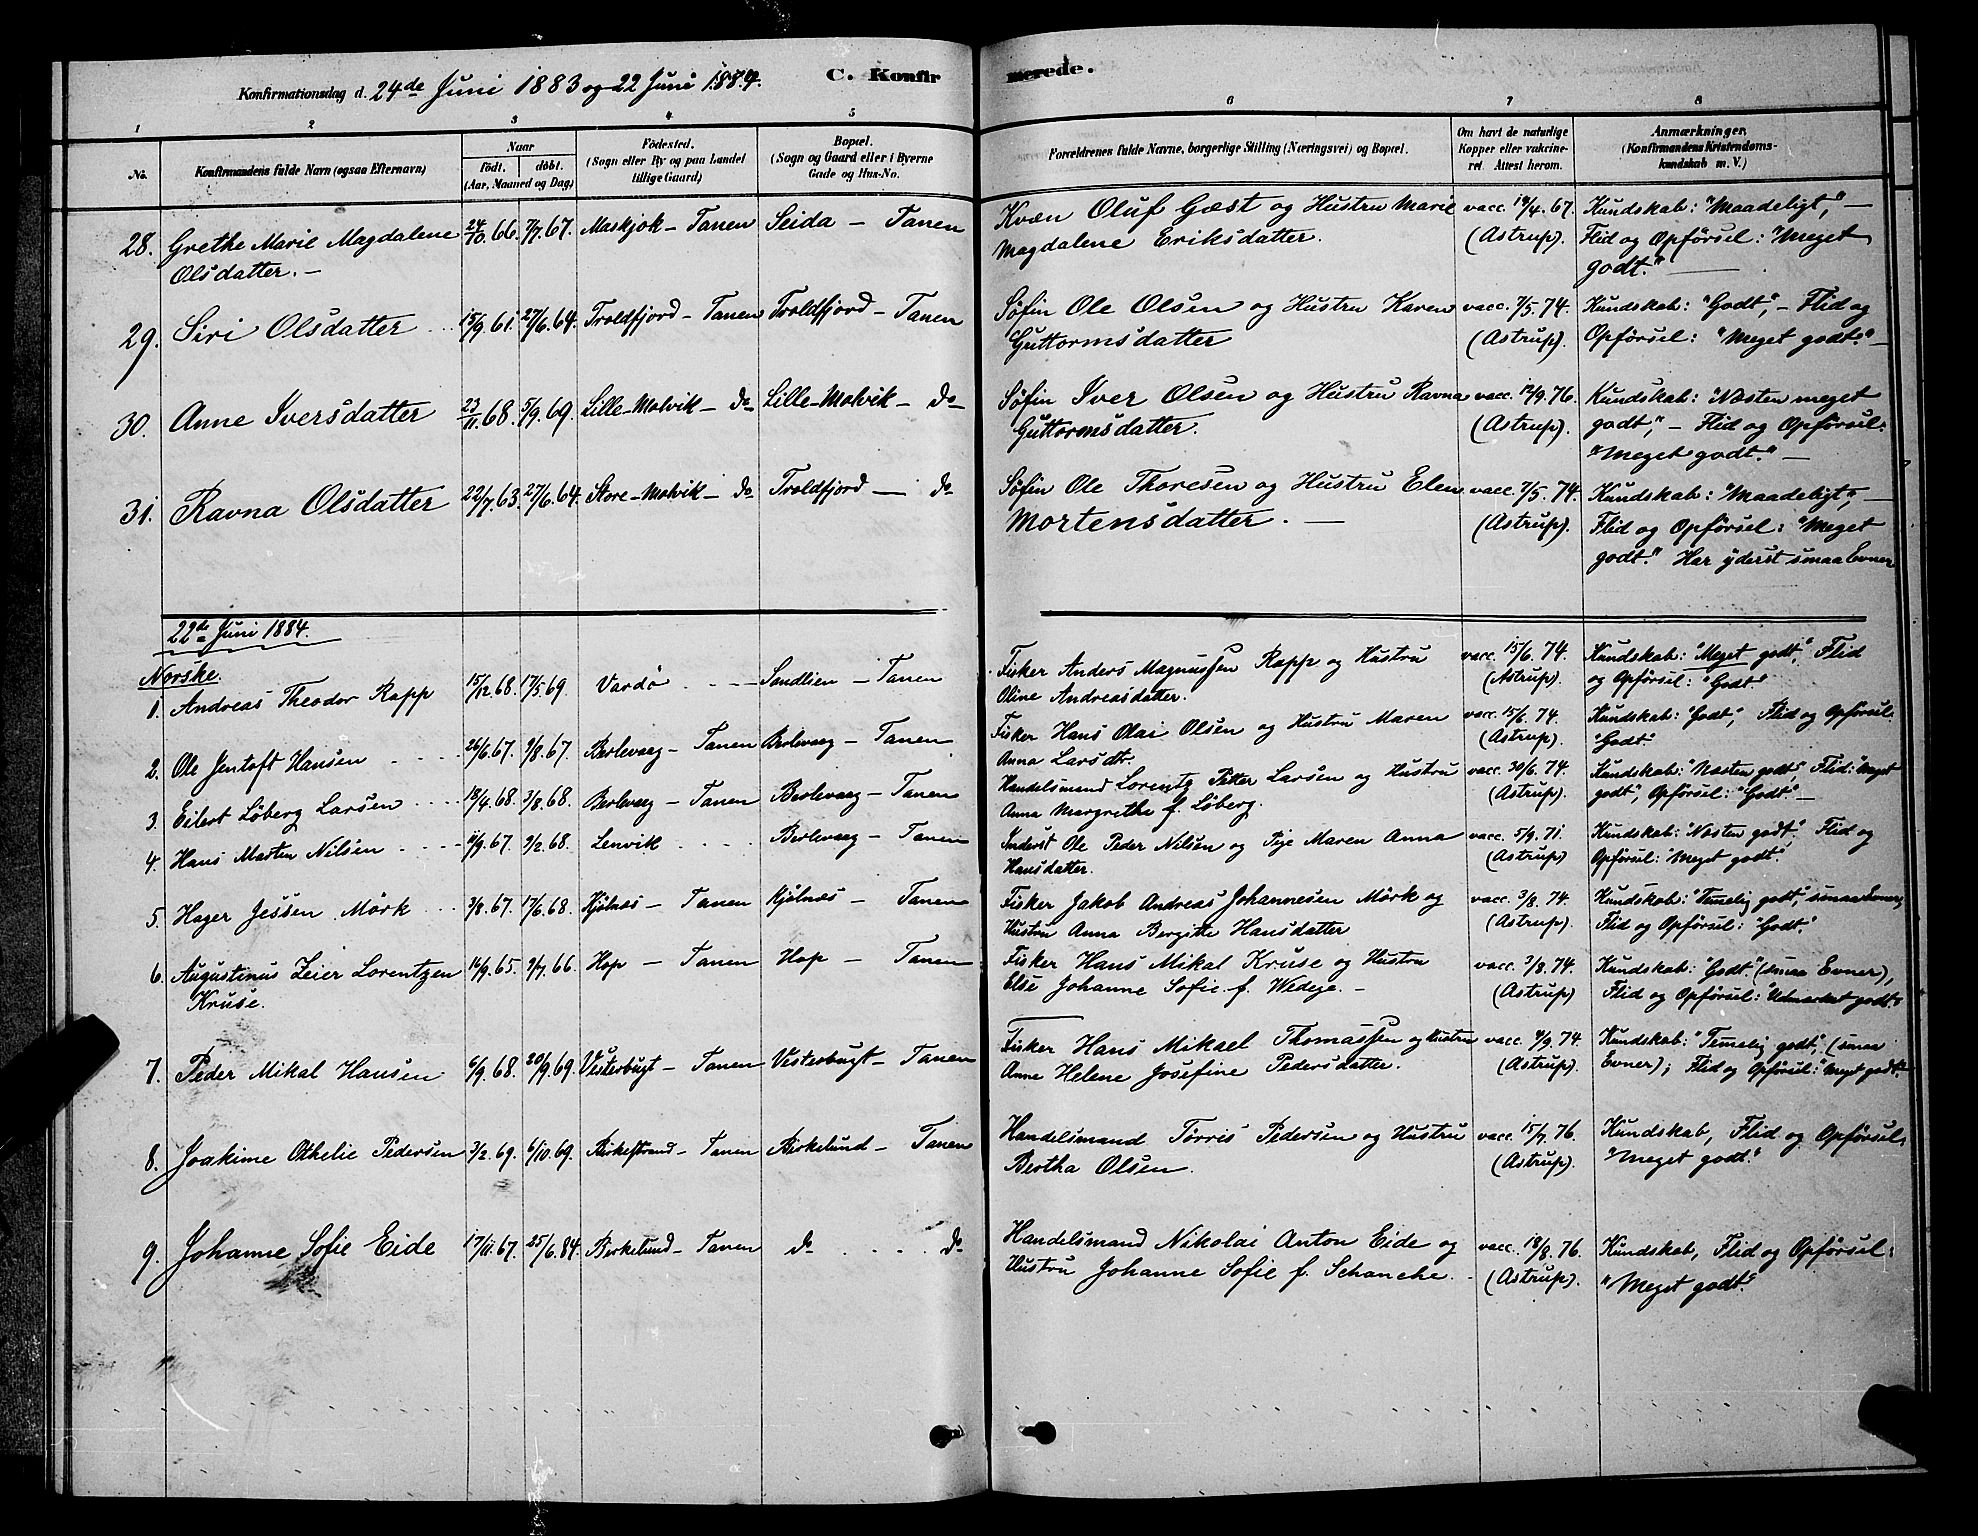 Konfirmationsdag d. 24de Juni 1883 og 22 Juni 1884. C. Konfir merede.
1 2 3 4 5 6 7 8
No. Konfirmandens fulde Navn (ogsaa Efternavn) Naar født. døbt. (Aar, Maaned og Dag) Fødested. (Sogn eller By og paa Landet tillige Gaard) Bopæl. (Sogn og Gaard eller i Byerne Gade og Hus-No. Forældrenes fulde Navne, borgerlige Stilling (Næringsvei) og Bopæl. Om havt de naturlige Kopper eller vakcineret. Attest herom. Anmærkninger. (Konfirmandens Kristendomskundskab m. V.)
28. Grethe Marie Magdalene 24/10.66. 7/7.67. Maskjok - Tanen Seida - Tanen Kvæn Oluf Gæst og Hustru Marie vacc. 19/4.67. Kundskab: "Maadeligt", -
Olsdatter. - Magdalene Eriksdatter. (Astrup). Flid og Opførsel: "Meget
godt."
29. Siri Olsdatter 15/9.61. 27/6.64. Troldfjord - Tanen Troldfjord - Tanen Søfin Ole Olsen og Hustru Karen vacc. 7/5.74. Kundskab: "Godt", - Flid og
Guttormsdatter (Astrup). Opførsel: "Meget godt." -
30. Anne Iversdatter 23/11.68. 5/9.69. Lille-Molvik - do Lille-Molvik - do Søfin Iver Olsen og Hustru Ravna vacc. 12/9.76. Kundskab: "Næsten meget
Guttormsdatter. (Astrup). godt", - Flid og Opførsel:
"Meget godt." -
31. Ravna Olsdatter 22/7.63. 27/6.64. Store-Molvik - do Troldfjord - do Søfin Ole Thoresen og Hustru Elen vacc. 7/5.74. Kundskab: "Maadeligt", -
Mortensdatter. - (Astrup). Flid og Opførsel: "Meget
godt." Har yderst smaa Evner
22de Juni 1884.
Norske.
1. Andreas Theodor Rapp 15/12.68. 17/5.69. Vardø Sandlien - Tanen Fisker Anders Magnussen Rapp og Hustru vacc. 15/6.74. Kundskab: "Meget godt", Flid
Oline Andreasdatter. (Astrup). og Opførsel: "Godt."
2. Ole Jentoft Hansen 26/6.67. 9/8.67. Berlevaag - Tanen Berlevaag - Tanen Fisker Hans Olai Olsen og Hustru Maren vacc. 15/6.74. Kundskab: "Godt", Flid og Opførsel:
Anna Larsdtr. (Astrup). "Godt."
3. Eilert Løberg Larsen 18/4.68. 3/8.68. Berlevaag - Tanen Berlevaag - Tanen Handelsmand Lorentz Petter Larsen og Hustru vacc. 30/6.74. Kundskab: "Næsten godt", Flid: "Meget
Anna Margrethe f. Løberg. (Astrup). godt", Opførsel: "Godt." -
4. Hans Morten Nilsen 9/67. 9/2.68. Lenvik Berlevaag - Tanen Inderst Ole Peder Nilsen og Pige Maren Anna vacc. 5/9.71. Kundskab: "Næsten godt", Flid og
Hansdatter. (Astrup) Opførsel: "Meget godt."
5. Hager Jessen Mörk 3/8.67. 17/6.68. Kjølnæs - Tanen Kjølnæs - Tanen Fisker Jakob Andreas Johannesen Mörk og vacc. 3/8.74. Kundskab: "Temelig godt", smaa Evner,
Hustru Anna Bergitte Hansdatter (Astrup). Flid og Opførsel: "Godt."
6. Augustinus Zeier Lorentzen 16/9.65. 9/7.66. Hop - Tanen Hop - Tanen Fisker Hans Mikal Kruse og Hustru vacc. 3/8.74. Kundskab: "Godt." (smaa Evner),
Kruse. Else Johanne Sofie f. Wedege. - (Astrup) Flid og Opførsel: "Udmærket godt."
7. Peder Mikal Hansen 6/9.68. 20/9.69. Vesterbugt - Tanen Vesterbugt - Tanen Fisker Hans Mikael Thomassen og Hustru vacc. 4/9.74. Kundskab: "Temelig godt", (smaa
Anne Helene Josefine Pedersdatter. (Astrup). Evner); Flid og Opførsel: "Meget godt."
8. Joakime Othelie Pedersen 3/2.69. 6/10.69. Birkestrand - Tanen Birkelund - Tanen Handelsmand Tørris Pedersen og Hustru vacc. 15/7.76. Kundskab, Flid og Opførsel:
Bertha Olsen. (Astrup). "Meget godt."
9. Johanne Sofie Eide 17/11.67. 25/6.84. Birkelund - Tanen do do Handelsmand Nikolai Anton Eide og vacc. 18/8.76. Kundskab, Flid og Opførsel:
Hustru Johanne Sofie f. Schanche. (Astrup). "Meget godt."